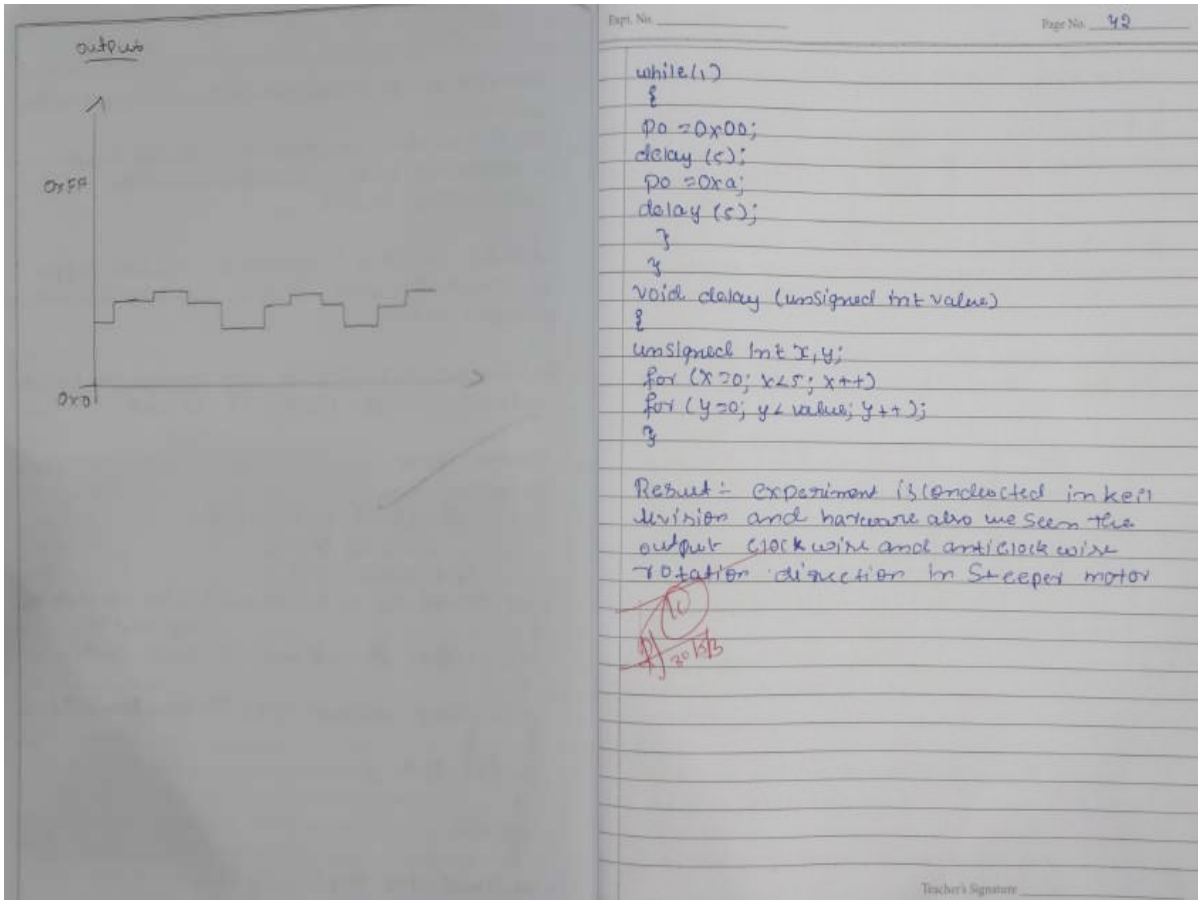 output
0xFF
0x0
Expt. No.
Page No. 42
while(1)
{
po =0x00;
delay (5);
po =0xa;
delay (5);
}
}
void delay (unsigned int value)
{
unsigned int x,y;
for (x=0; x<5; x++)
for (y=0; y< value; y++);
}
Result:- experiment is conducted in keil
uvision and hardware also we seen the
output clock wise and anticlock wise
rotation direction in Steeper motor
10
Teacher's Signature